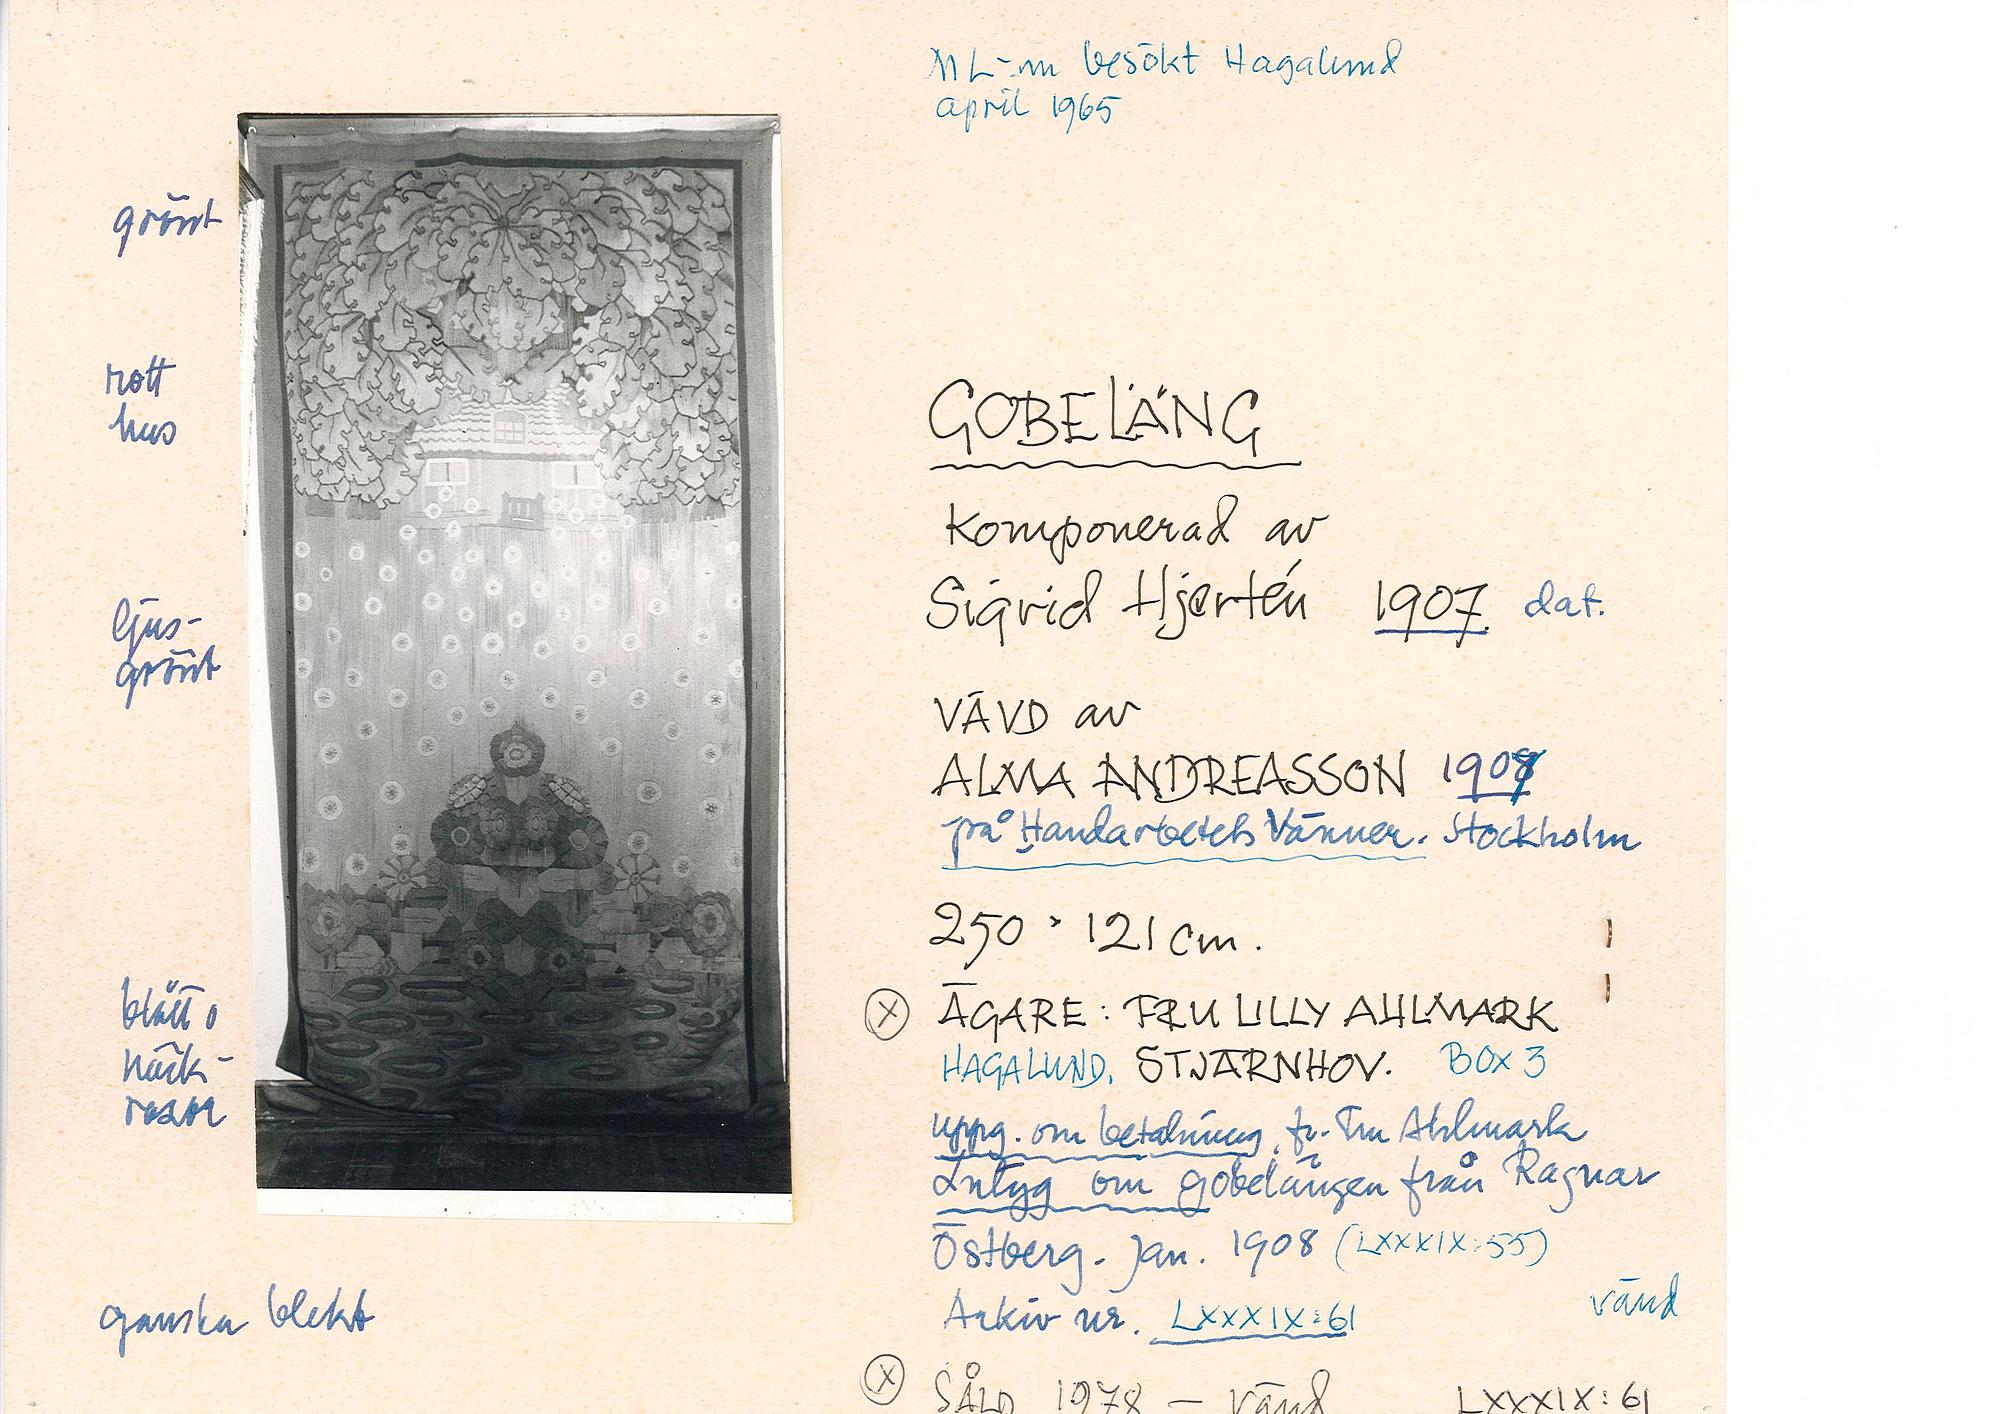 ML-m besökt Hagalund
april 1965
grönt
rött
hus
ljus-
grönt
blått o
näck-
rosor
ganska blekt
GOBELÄNG
Komponerad av
Sigrid Hjertén 1907 dat.
VÄVD av
ALMA ANDREASSON
på Handarbetets Vänner. Stockholm
250 × 121 cm.
Ⓧ ÄGARE: FRU LILLY AHLMARK
HAGALUND, STJÄRNHOV. BOX 3
uppg. om betalning fr. Fru Ahlmark
Intyg om gobelängen från Ragnar
Östberg. Jan. 1908 (LXXXIX:55)
Arkiv nr. LXXXIX:61
vänd
Ⓧ SÅLD 1978 — vänd LXXXIX:61